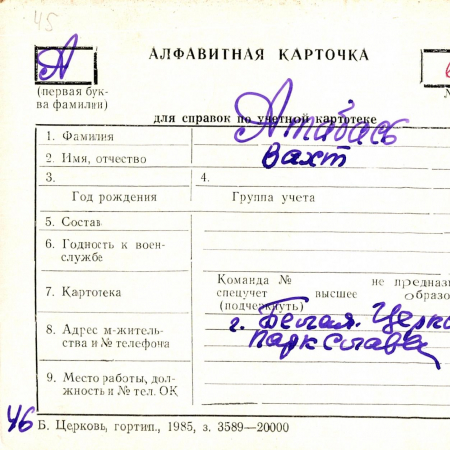 45
А
АЛФАВИТНАЯ КАРТОЧКА
(первая бук-
ва фамилии)
для справок по учетной картотеке
1. Фамилия Атабась
2. Имя, отчество Вахт
3. 4.
Год рождения Группа учета
5. Состав
6. Годность к воен-
службе
7. Картотека
Команда № не предназ
спецучет высшее образо
(подчеркнуть)
8. Адрес м-житель-
ства и № телефона
г. Белая. Церко
парк Слава
9. Место работы, дол-
жность и № тел. ОК
46
Б. Церковь, гортип., 1985, з. 3589—20000